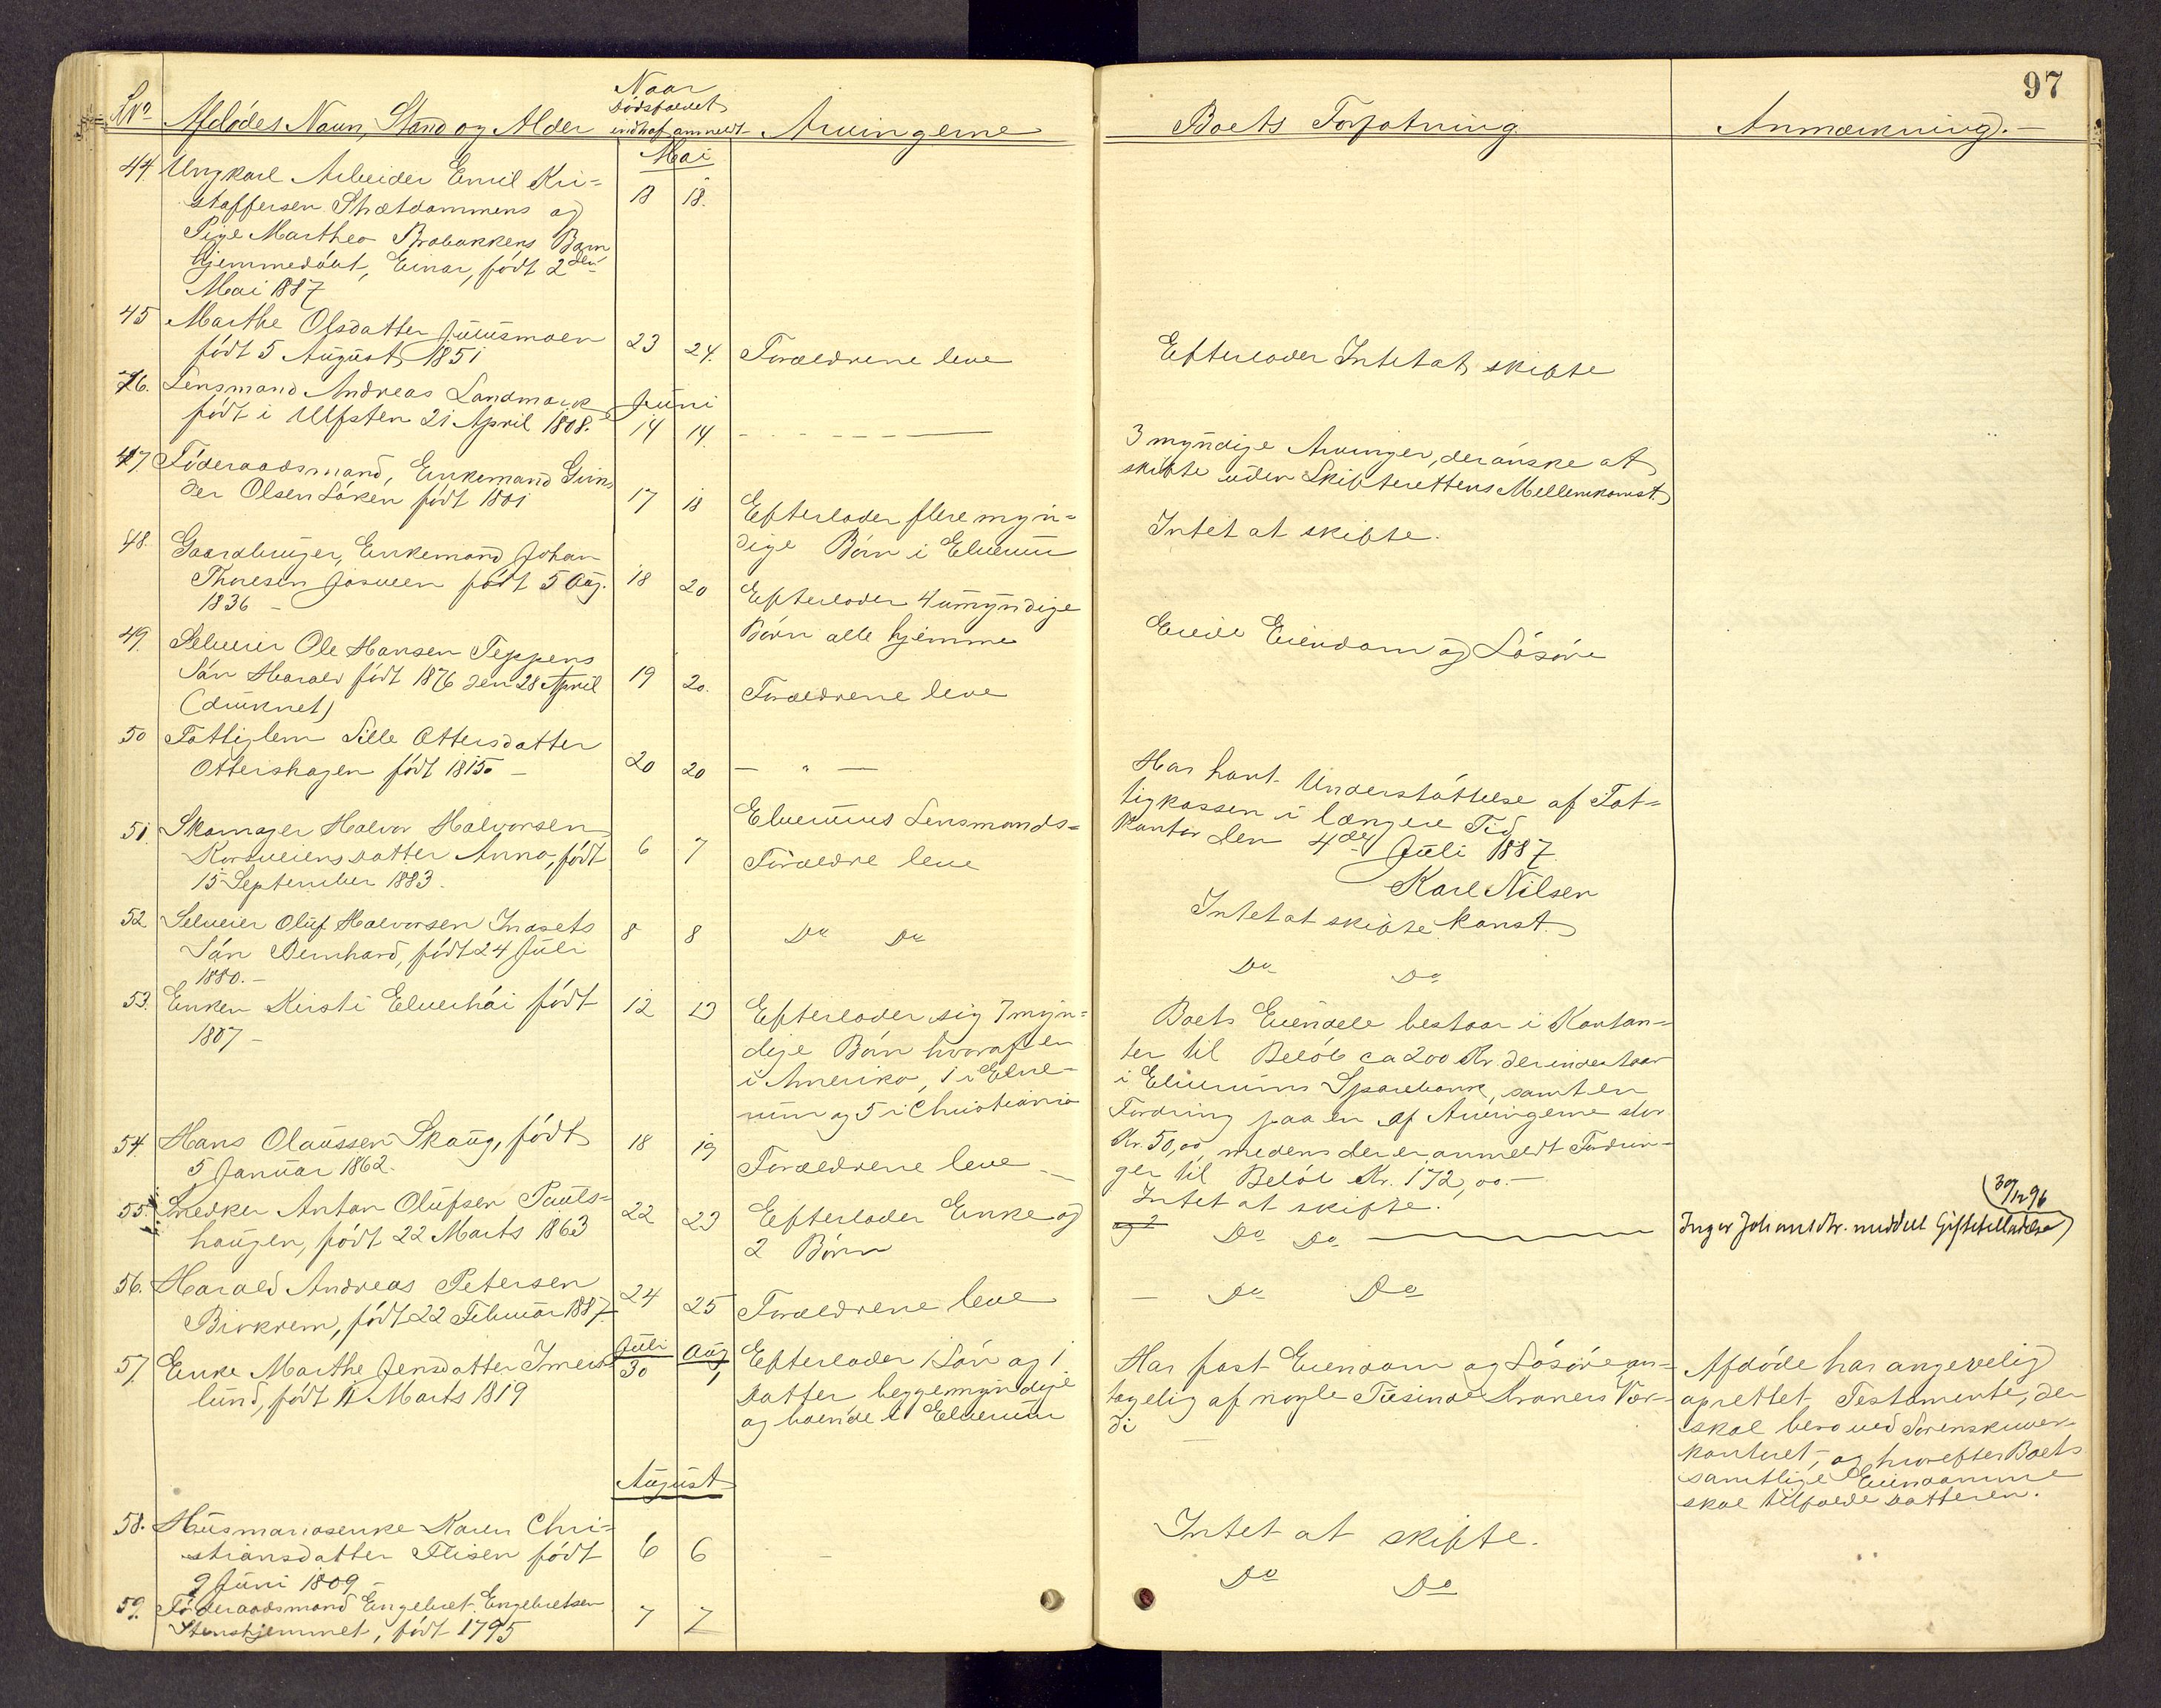 97
No Afdødes Navn, Stand og Alder
Naar
Dødsfaldet
indtraf anmeldt
Arvingerne
Boets Forfatning
Anmærkning.-
Mai
44. Ungkarl Arbeider Emil Kri=
stoffersen Strætdammens og
Pige Marthea Brobakkens Barn
hjemmedøbt, Einar, født 2den
Mai 1887
18 18.
45 Marthe Olsdatter Juliusmoen
født 5 August 1851
23 24. Forældrene leve
Efterlader Intet at skifte
Juni
46. Lensmand Andreas Landmark
født i Ulfsten 21 April 1808.
14 14.
3 myndige Arvinger, der ønske at
skifte uden Skifterettens Mellemkomst.
47 Føderaadsmand, Enkemand Gun
der Olsen Løken født 1801
17 18 Efterlader flere myn=
dige Børn i Elverum
Intet at skifte.
48. Gaardbruger, Enkemand Johan
Thoresen Jøsveen født 5 Aug.
1836 -
18 20 Efterlader 4 umyndige
Børn alle hjemme
Eiede Eiendom og Løsøre
49. Selveier Ole Hansen Teppens
Søn Harald født 1876 den 28 April
(druknet)
19 20. Forældrene leve
50 Fattiglem Sille Ottersdatter
Ottershagen født 1815. -
20 20 - " -
Har havt Understøttelse af Fat=
tigkassen i længere Tid
Elverums Lensmands=
kontor den 4de Juli 1887.
Karl Nilsen
Konst.
51. Skomager Halvor Halvorsen
Korsveiens Datter Anna, født
15 September 1883.
6 7 Forældre leve
Intet at skifte
52 Selveier Oluf Halvorsen Indsets
Søn Bernhard, født 24 Juli
1880.-
8 8 Do Do
Do Do
53. Enken Kirsti Elverhøi født
1807 -
12 13 Efterlader sig 7 myn=
dige Børn hvoraf en
i Amerika, 1 i Elve-
rum og 5 i Christiania
Boets Eiendele bestaar i Kontan=
ter til Beløb ca 200 Kr der indestaar
i Elverums Sparebank, samt en
Fordring paa en af Arvingerne stor
Kr. 50,00, medens der er anmeldt Fordrin=
ger til Beløb Kr. 172,00.-
54. Hans Olaussen Skaug, født
5 Januar 1862.
18 19 Forældrene leve -
Intet at skifte.
55. Snedker Anton Olufsen Pauls=
haugen, født 22 Marts 1863
22 23 Efterlader Enke og
2 Børn
Do Do
30/12 96
Inger Johansdtr. meddelt Giftetilladelse
56. Harald Andreas Petersen
Birkrem, født 22 Februar 1887.
24 25 Forældrene leve
- Do Do
Juli Aug
57. Enke Marthe Jensdatter Imers
lund, født 11 Marts 1819
30 1 Efterlader 1 Søn og 1
Datter begge myndige
og boende i Elverum
Har fast Eiendom og Løsøre an=
tagelig af nogle Tusinde Kroners Vær=
di
Afdøde har angivelig
oprettet Testamente, der
skal bero ved Sorenskriver
kontoret, og hvorefter Boets
samtlige Eiendomme
skal tilfalde Datteren.
August
58. Husmandsenke Karen Chri=
stiansdatter Flisen født
9 Juni 1809 -
6 6 -
Intet at skifte.
59. Føderaadsmand Engebret Engebretsen
Stenshjemmet, født 1795
7 7
Do Do